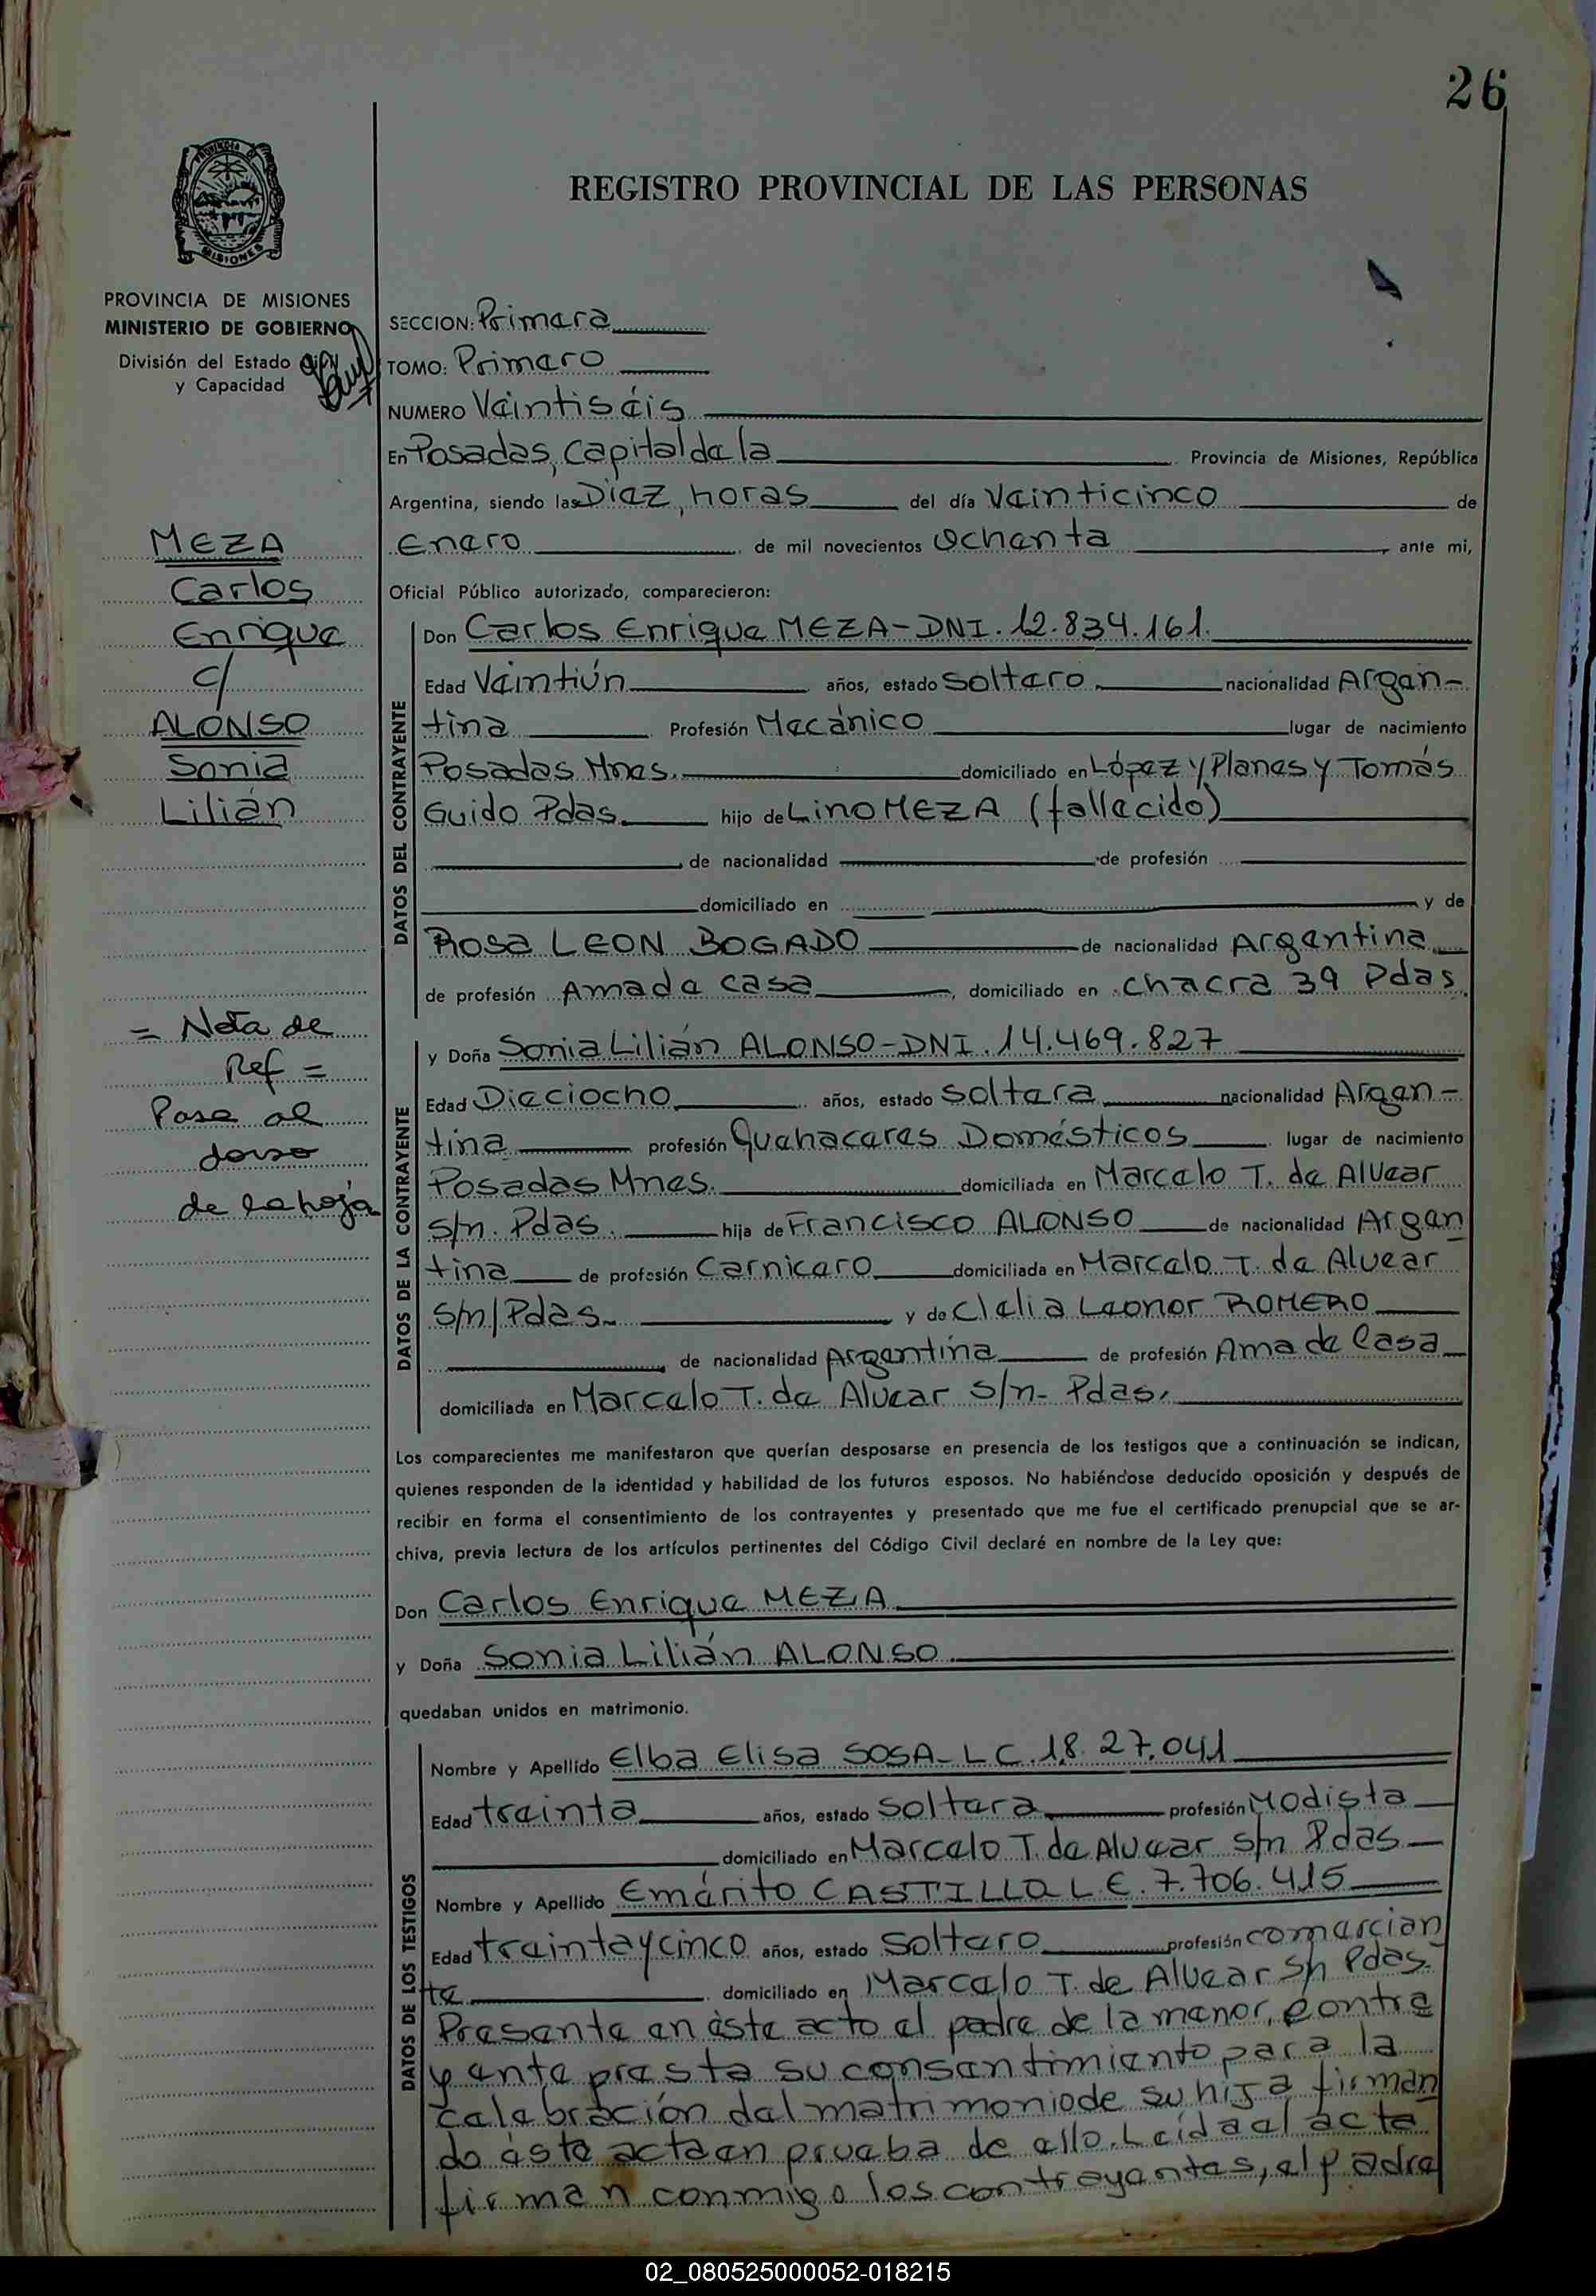 26
REGISTRO PROVINCIAL DE LAS PERSONAS
PROVINCIA DE MISIONES
MINISTERIO DE GOBIERNO
División del Estado Civil
y Capacidad
SECCION: Primera
TOMO: Primero
NUMERO Veintiséis
En Posadas, Capital de la Provincia de Misiones, República
Argentina, siendo las Diez, horas del día Veinticinco de
Enero de mil novecientos Ochenta, ante mi,
Oficial Público autorizado, comparecieron:
MEZA
Carlos
Enrique
c/
ALONSO
Sonia
Lilián
= Nota de
Ref =
Pase al
dorso
de la hoja
DATOS DEL CONTRAYENTE
Don Carlos Enrique MEZA-DNI. 12.834.161.
Edad Veintiún años, estado Soltero nacionalidad Argen-
tina Profesión Mecánico lugar de nacimiento
Posadas Mnes. domiciliado en López y Planes y Tomás
Guido Pdas. hijo de Lino MEZA (fallecido)
de nacionalidad de profesión
domiciliado en y de
Rosa LEON BOGADO de nacionalidad Argentina
de profesión Ama de casa, domiciliado en chacra 39 Pdas.
DATOS DE LA CONTRAYENTE
y Doña Sonia Lilián ALONSO-DNI. 14.469.827
Edad Dieciocho años, estado Soltera nacionalidad Argen-
tina profesión Quehaceres Domésticos lugar de nacimiento
Posadas Mnes. domiciliada en Marcelo T. de Alvear
s/n. Pdas. hija de Francisco ALONSO de nacionalidad Argen
tina de profesión Carnicero domiciliada en Marcelo T. de Alvear
s/n/Pdas. y de Clelia Leonor ROMERO
de nacionalidad Argentina de profesión Ama de Casa
domiciliada en Marcelo T. de Alvear s/n- Pdas.
Los comparecientes me manifestaron que querían desposarse en presencia de los testigos que a continuación se indican,
quienes responden de la identidad y habilidad de los futuros esposos. No habiéndose deducido oposición y después de
recibir en forma el consentimiento de los contrayentes y presentado que me fue el certificado prenupcial que se ar-
chiva, previa lectura de los artículos pertinentes del Código Civil declaré en nombre de la Ley que:
Don Carlos Enrique MEZA
y Doña Sonia Lilián ALONSO
quedaban unidos en matrimonio.
DATOS DE LOS TESTIGOS
Nombre y Apellido Elba Elisa SOSA-L C. 1.8 27.041
Edad treinta años, estado Soltera profesión Modista
domiciliado en Marcelo T. de Alvear s/n Pdas
Nombre y Apellido Emérito CASTILLO L E. 7.706.415
Edad treinta y cinco años, estado Soltero profesión comercian
te domiciliado en Marcelo T. de Alvear s/n Pdas.
Presente en éste acto el padre de la menor, contra
yente presta su consentimiento para la
celebración del matrimonio de su hija firman
do éste acta en prueba de ello. Leída el acta
firman conmigo los contrayentes, el padre
02_080525000052-018215